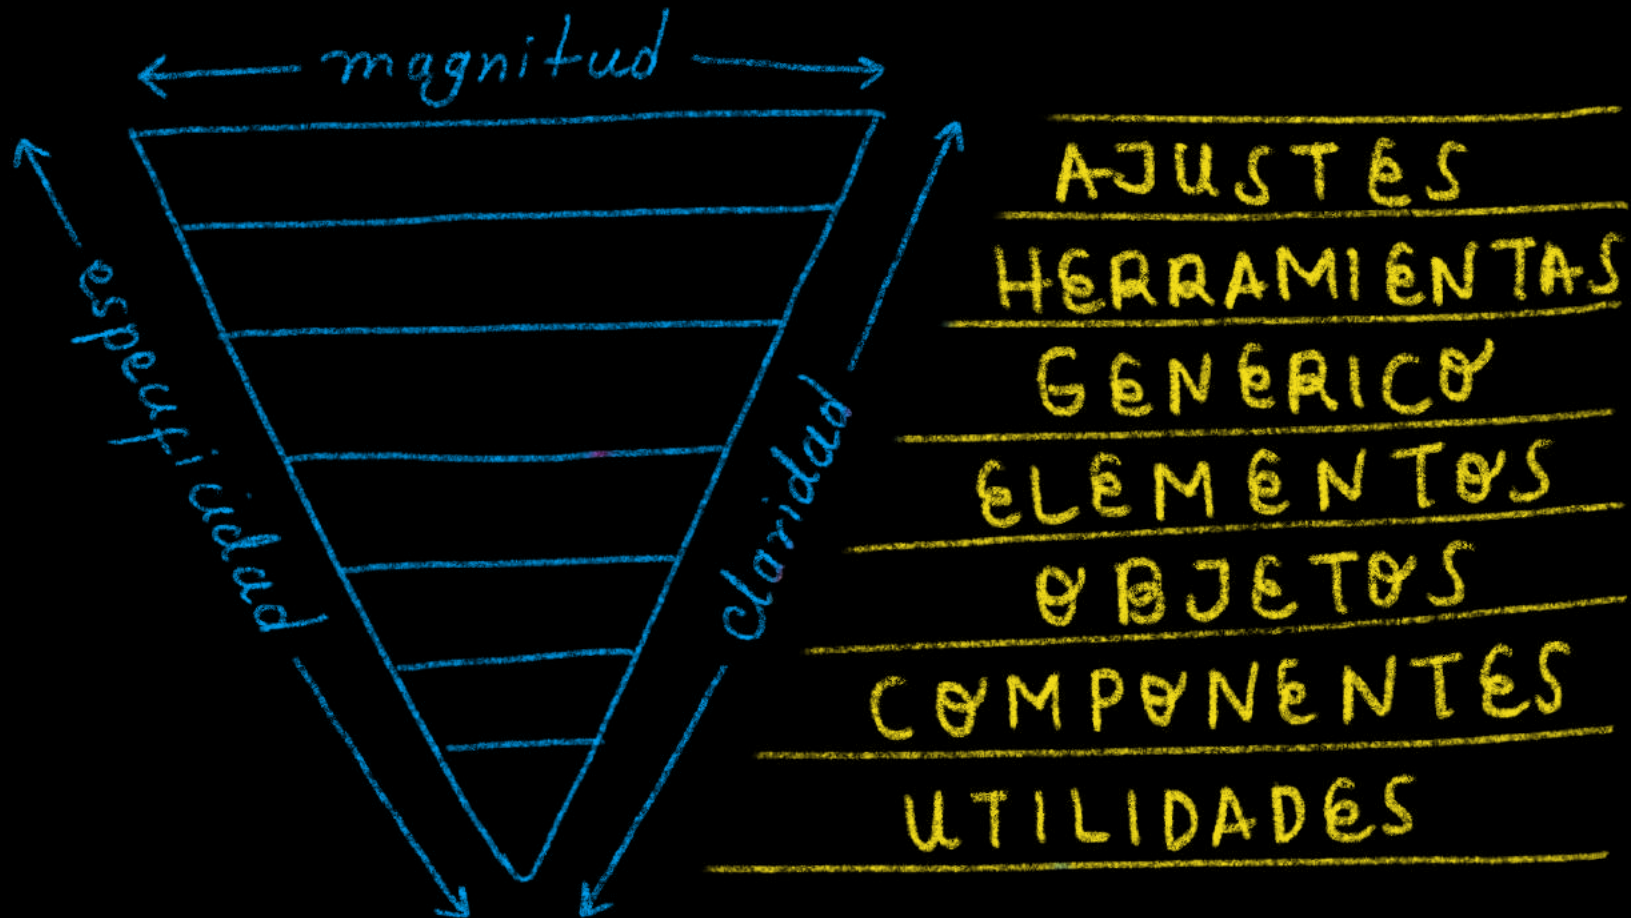 magnitud
especificidad
claridad
AJUSTES
HERRAMIENTAS
GENERICO
ELEMENTOS
OBJETOS
COMPONENTES
UTILIDADES